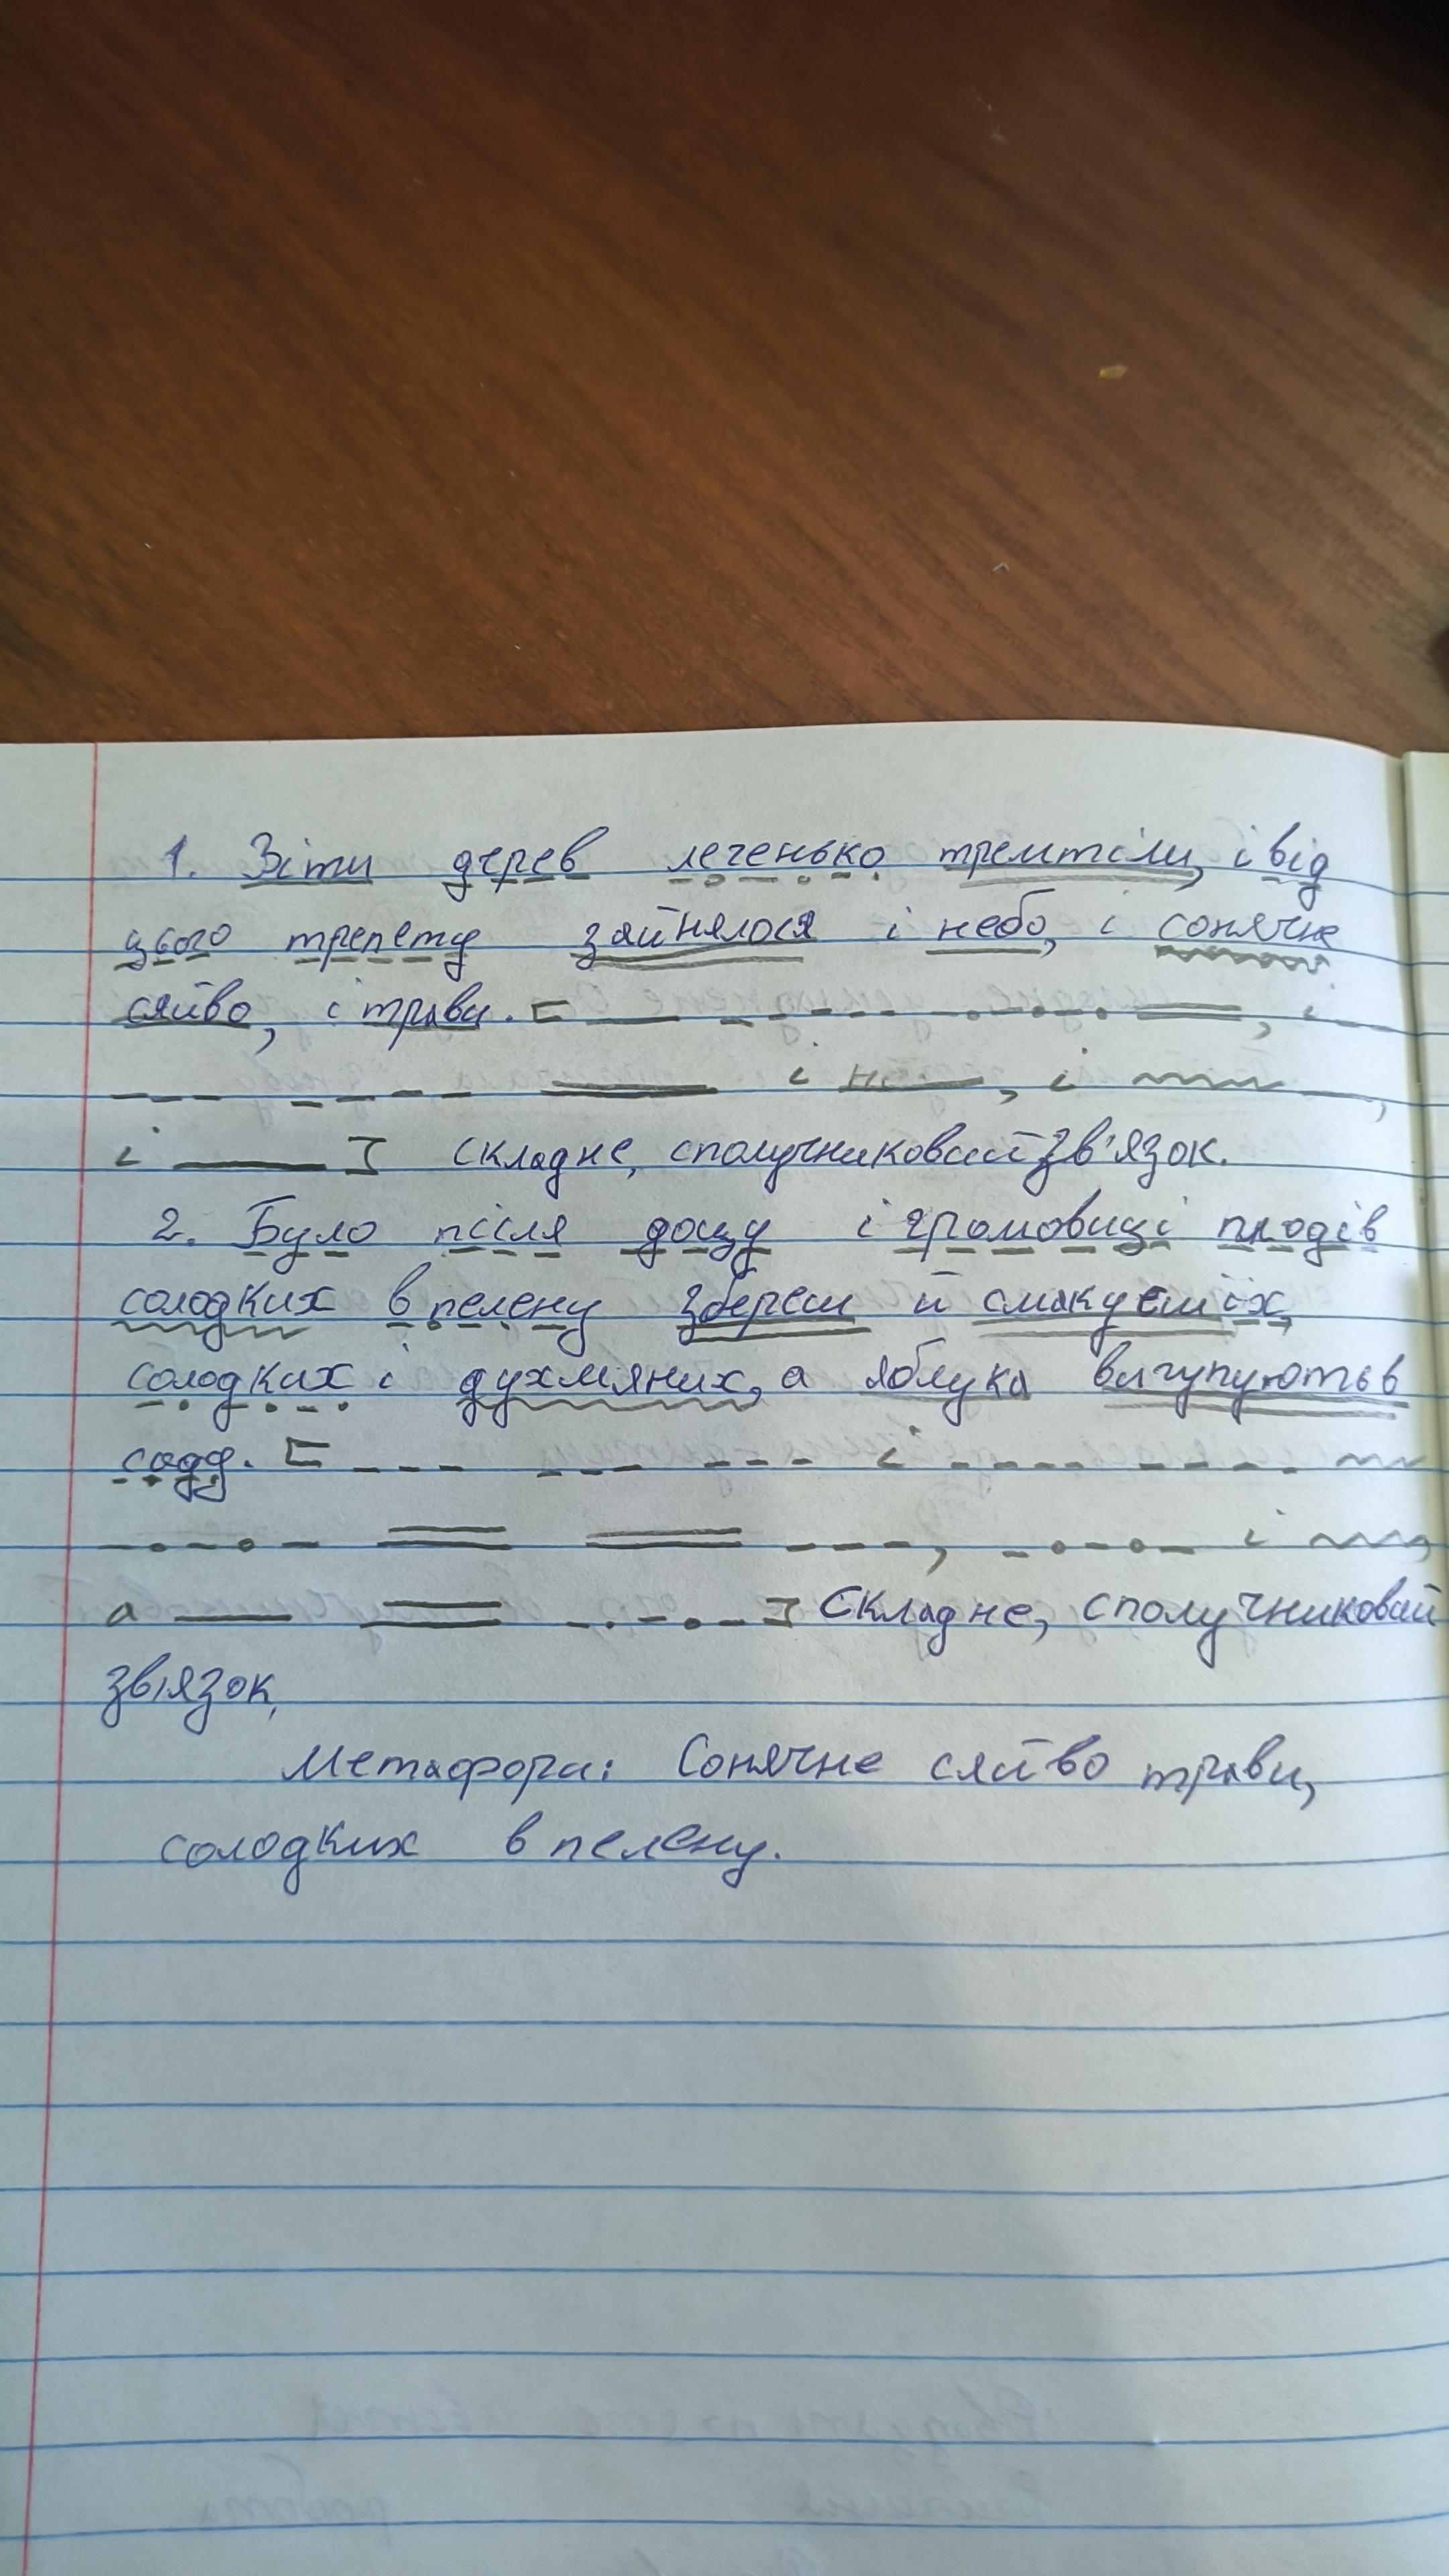 1. Зіти дерев легенько тремтіли, і від
цього трепету зайнялося і небо, і сонячне
сяйво, і трави. [ , і
і не , і ,
і ] Складне, сполучниковий зв'язок.
2. Було після дощу і громовиці плодів
солодких в пелену збереш й смакуєш їх,
солодких і духмяних, а яблука вигупують в
саду. [ і
, і ,
а ] Складне, сполучниковий
зв'язок,
Метафори: Сонячне сяйво трави,
солодких в пелену.